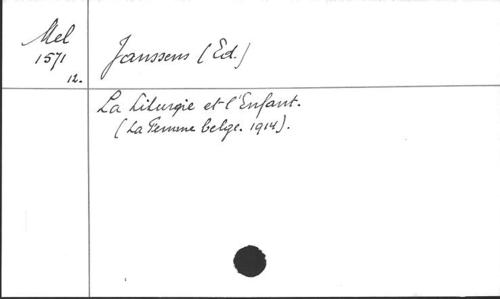 Mel
1571
12.
Janssens (Ed.)
La Liturgie et l'Enfant.
(La Femme belge. 1914).